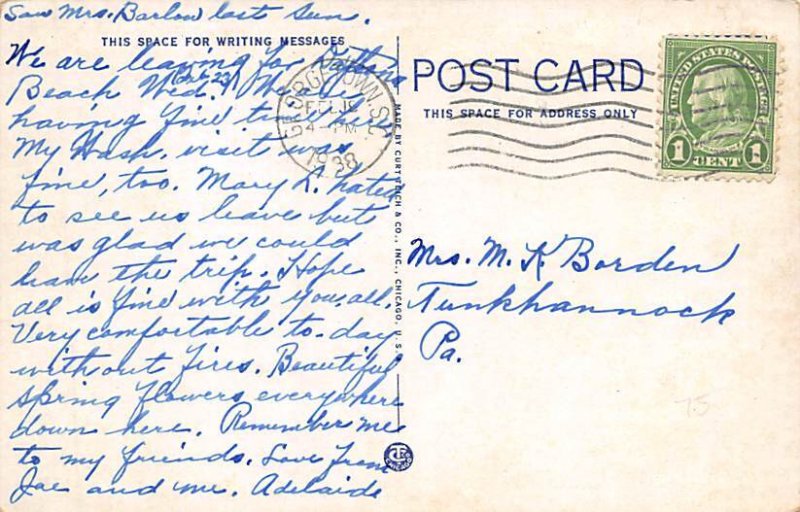 Saw Mrs. Barlow last Sun.
THIS SPACE FOR WRITING MESSAGES
We are leaving for Daytona
Beach Wed. (Feb 23)
having fine time here
My Wash. visit was
fine, too. Mary L. hated
to see us leave but
was glad we could
have the trip. Hope
all is fine with you all.
Very comfortable to-day
without fires. Beautiful
spring flowers everywhere
down here. Remember me
to my friends. Love from
Joe and me. Adelaide
MADE BY CURTEICH & CO., INC., CHICAGO, U.S.
GEORGETOWN, S.C.
FEB
4 PM
1938
POST CARD
THIS SPACE FOR ADDRESS ONLY
UNITED STATES POSTAGE
1 CENT 1
Mrs. M. K Borden
Tunkhannock
Pa.
75